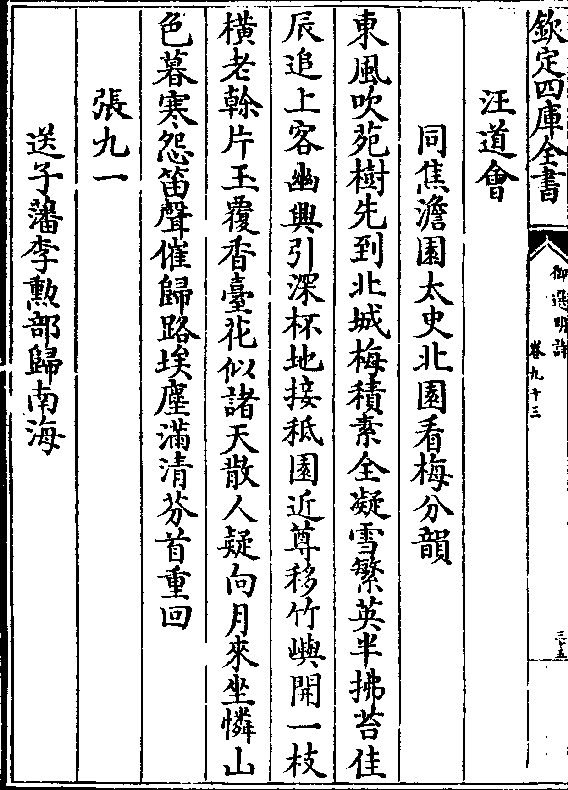 欽定四庫全書
御選明詩
卷九十三
三十五
汪道會
同焦澹園太史北園看梅分韻
東風吹苑樹先到北城梅積素全凝雪繁英半拂苔佳
辰追上客幽興引深杯地接秪園近尊移竹嶼開一枝
橫老榦片玉覆香臺花似諸天散人疑向月來坐憐山
色暮寒怨笛聲催歸路埃塵滿清芬首重回
張九一
送子藩李勲部歸南海